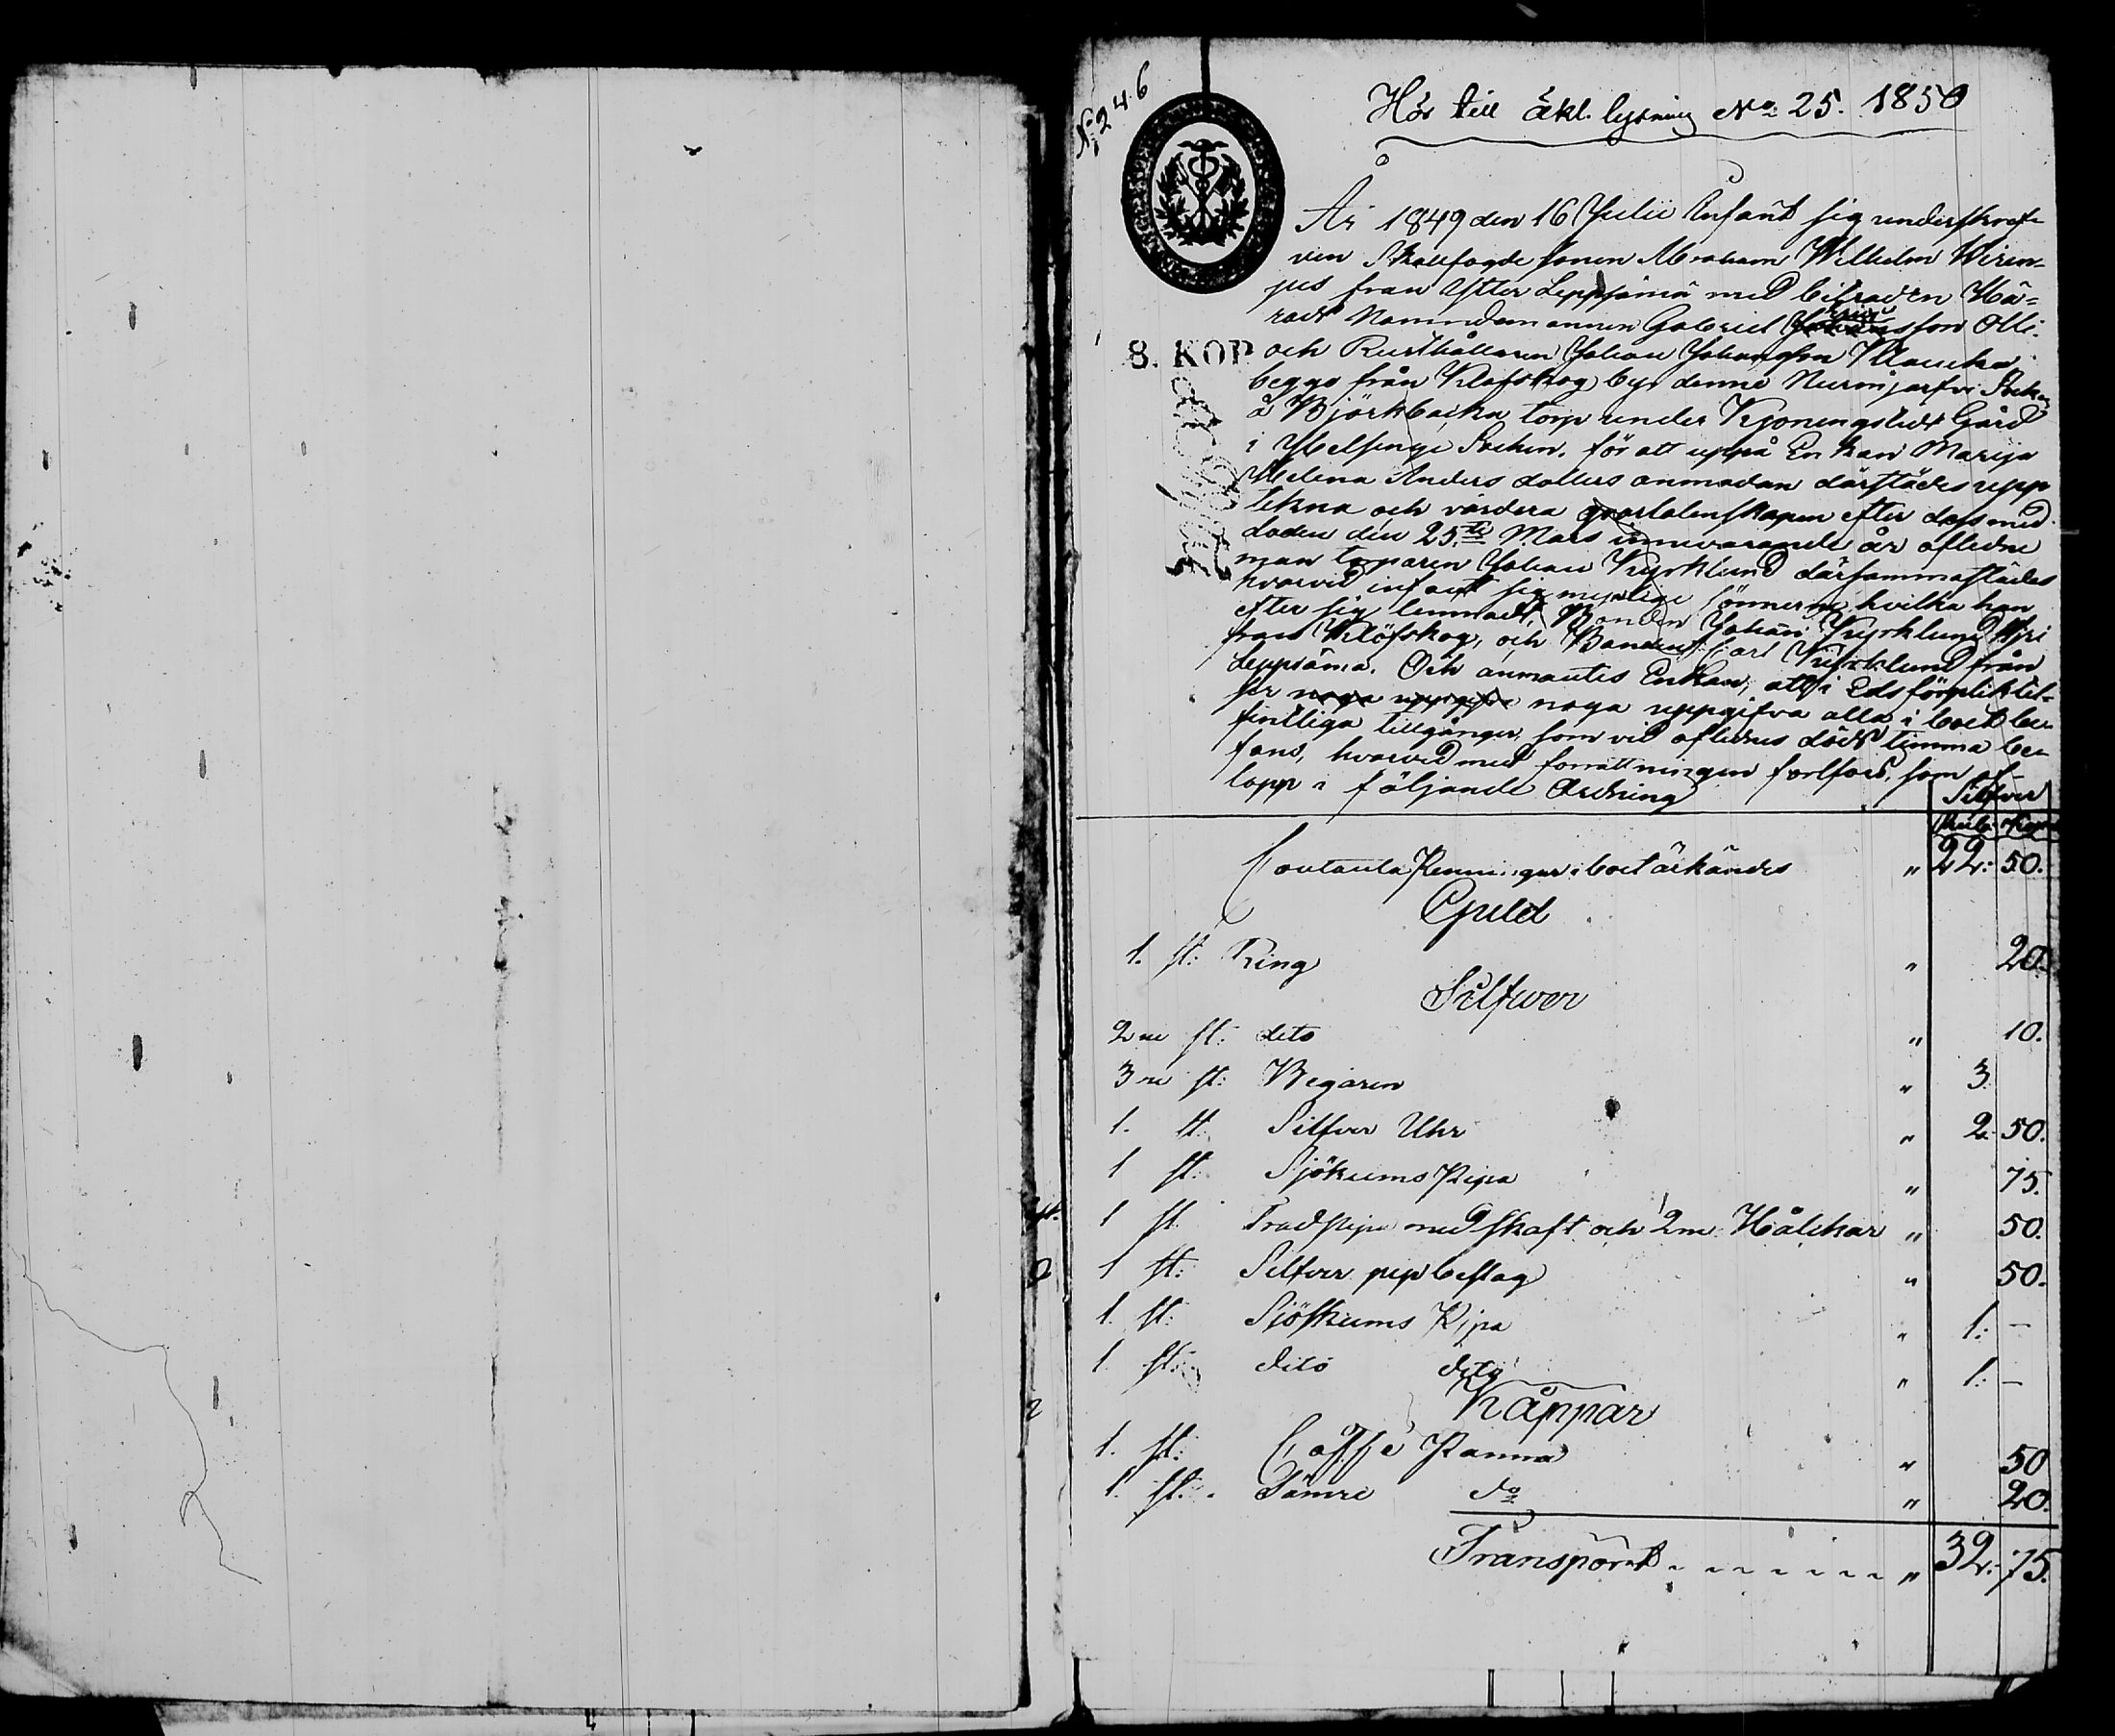 No 246
Hör till äkl. lysning No 25. 1850
År 1849 den 16 Julii Infant sig underskref-
ven Skallfogde sonen Abraham Wilhelm Wiren-
jus från Ytter Leppsämä med biträden Hä=
rads Nämndemannen Gabriel son Olli.
8. KOP och Rusthållaren Johan Johansson Klaucka
begge från Klöfskog by denne Nurmijarfvi Sokn
å Björkbacka torp under Gård
i Helsinge Socken. för att uppå Enkan Marija
Helena Anders dotters anmodan därstädes upp
tekna och värdera qvarlatenskapen efter dess med
doden den 25te Mars innevarande år aflidne
man torparen Johan Kyrklund därsammastädes
hvarvid infant sig myndige sönnerne hvilka han
efter sig lemnadt, Bonden Johan Kyrklund
från Klöfskog, och Bonden Carl Kyrklund från
Leppsämä. Och anmantes Enkan, att i Eds förpliktel-
ser noga uppgifva noga uppgifva alla i boet be-
fintliga tillgånger, som vid aflidnes döds timma be-
fans, hvarvid med forrättningen fortfors, som af-
lopp i följande Ordning
Silfver
Rub. Kop
Contanta Penningar i boet ärkändes " 22: 50.
Guld
1. st: Ring " 20.
Silfwer
2ne st: dito " 10.
3ne st: Begaren " 3.
1. st. Silfver Uhr " 2. 50.
1 st: Sjökums Pipa " 75.
1 st Tradpipa med skaft och 2ne Hålckar " 50.
1 st: Silfver pipbeslag " 50.
1. st: Sjöskums Pipa " 1: —
1. st: dito dito " 1: —
Kåppar
1. st: Caffe Panna " 50
1. st. Sämre do " 20.
Transport " 32: 75.